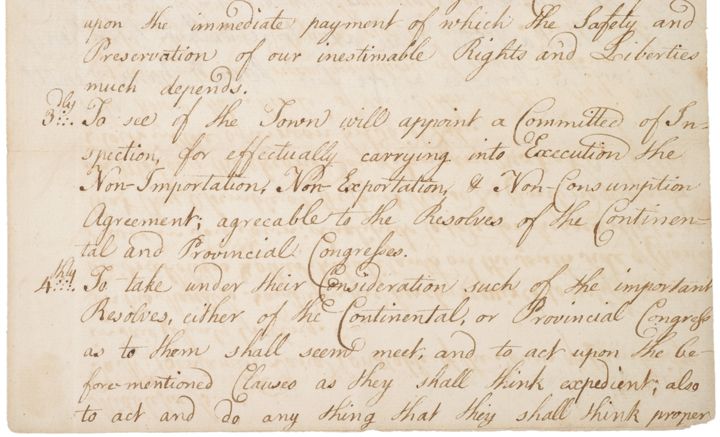 upon the immediate payment of which the Safety and
Preservation of our inestimable Rights and Liberties
much depends.
3dly. To see if the Town will appoint a Committee of In-
spection, for effectually carrying into Execution the
Non-Importation, Non-Exportation, & Non-Consumption
Agreement; agreeable to the Resolves of the Continen-
tal and Provincial Congresses.
4thly. To take under their Consideration such of the important
Resolves, either of the Continental, or Provincial Congress
as to them shall seem meet; and to act upon the be-
fore-mentioned Clauses as they shall think expedient; also
to act and do any thing that they shall think proper